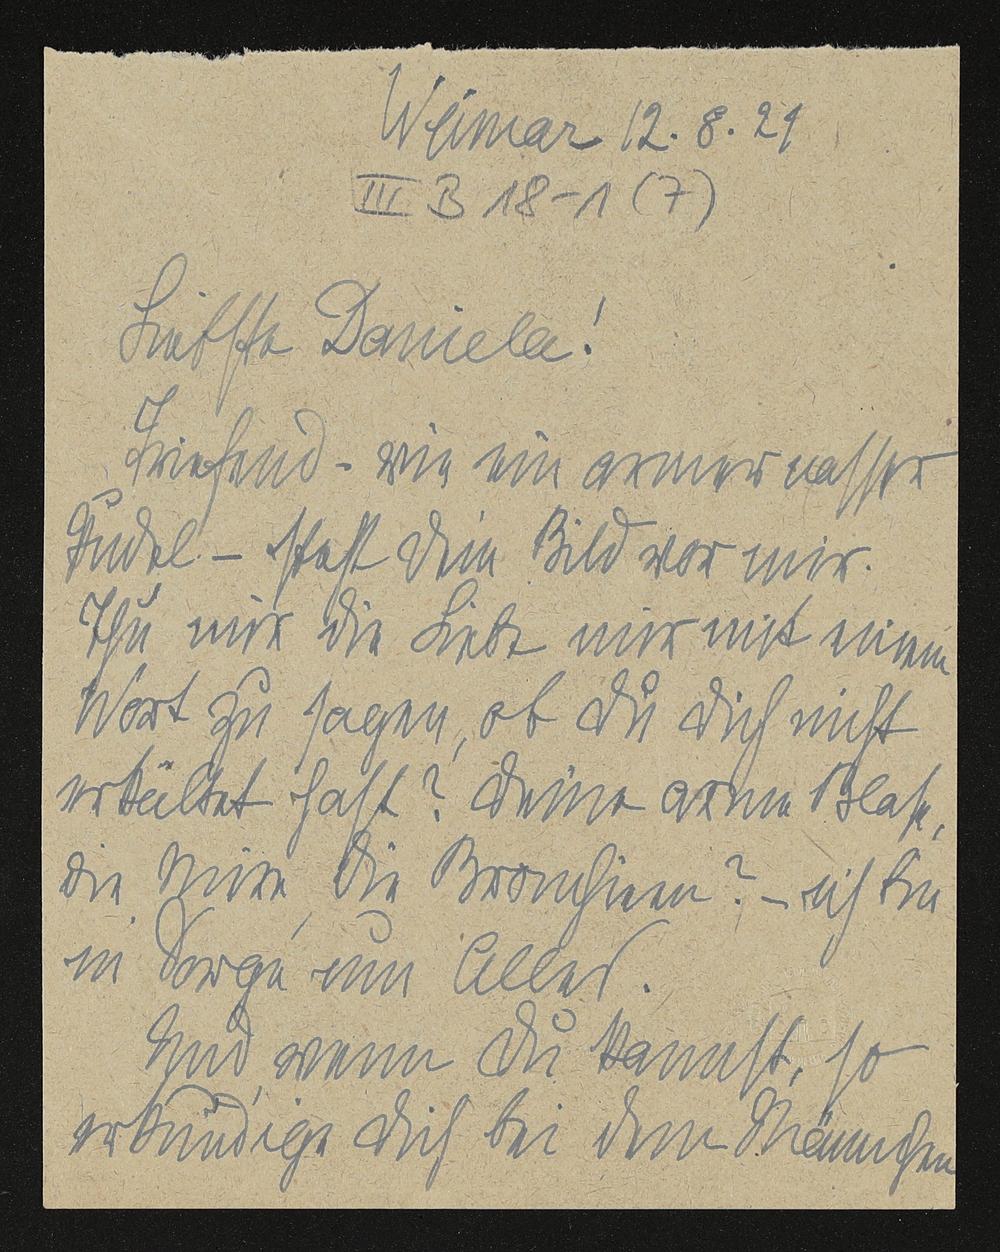 Weimar 12. 8. 21
III B 18-1 (7)
Liebste Daniela!
Triefend - wie ein armer nasser
Pudel - steht dein Bild vor mir.
Thu mir die Liebe mir mit einem
Wort zu sagen, ob du dich nicht
erkältet hast? deine arme Blase,
die Niere, die Bronchien? - ich bin
in Sorge um Alles.
Und, wenn du kannst, so
erkundige dich bei dem Männchen